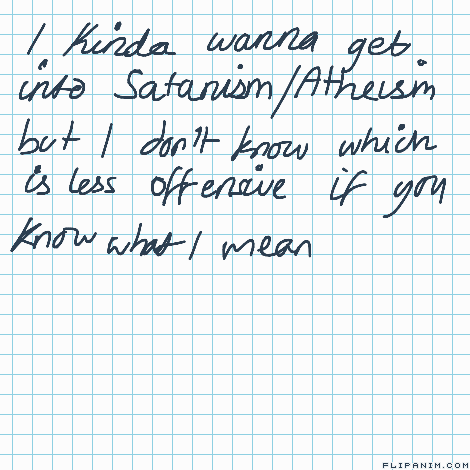 I Kinda wanna get
into Satanism/Atheism
but I don't know which
is less offensive if you
Know what I mean
FLIPANIM.COM